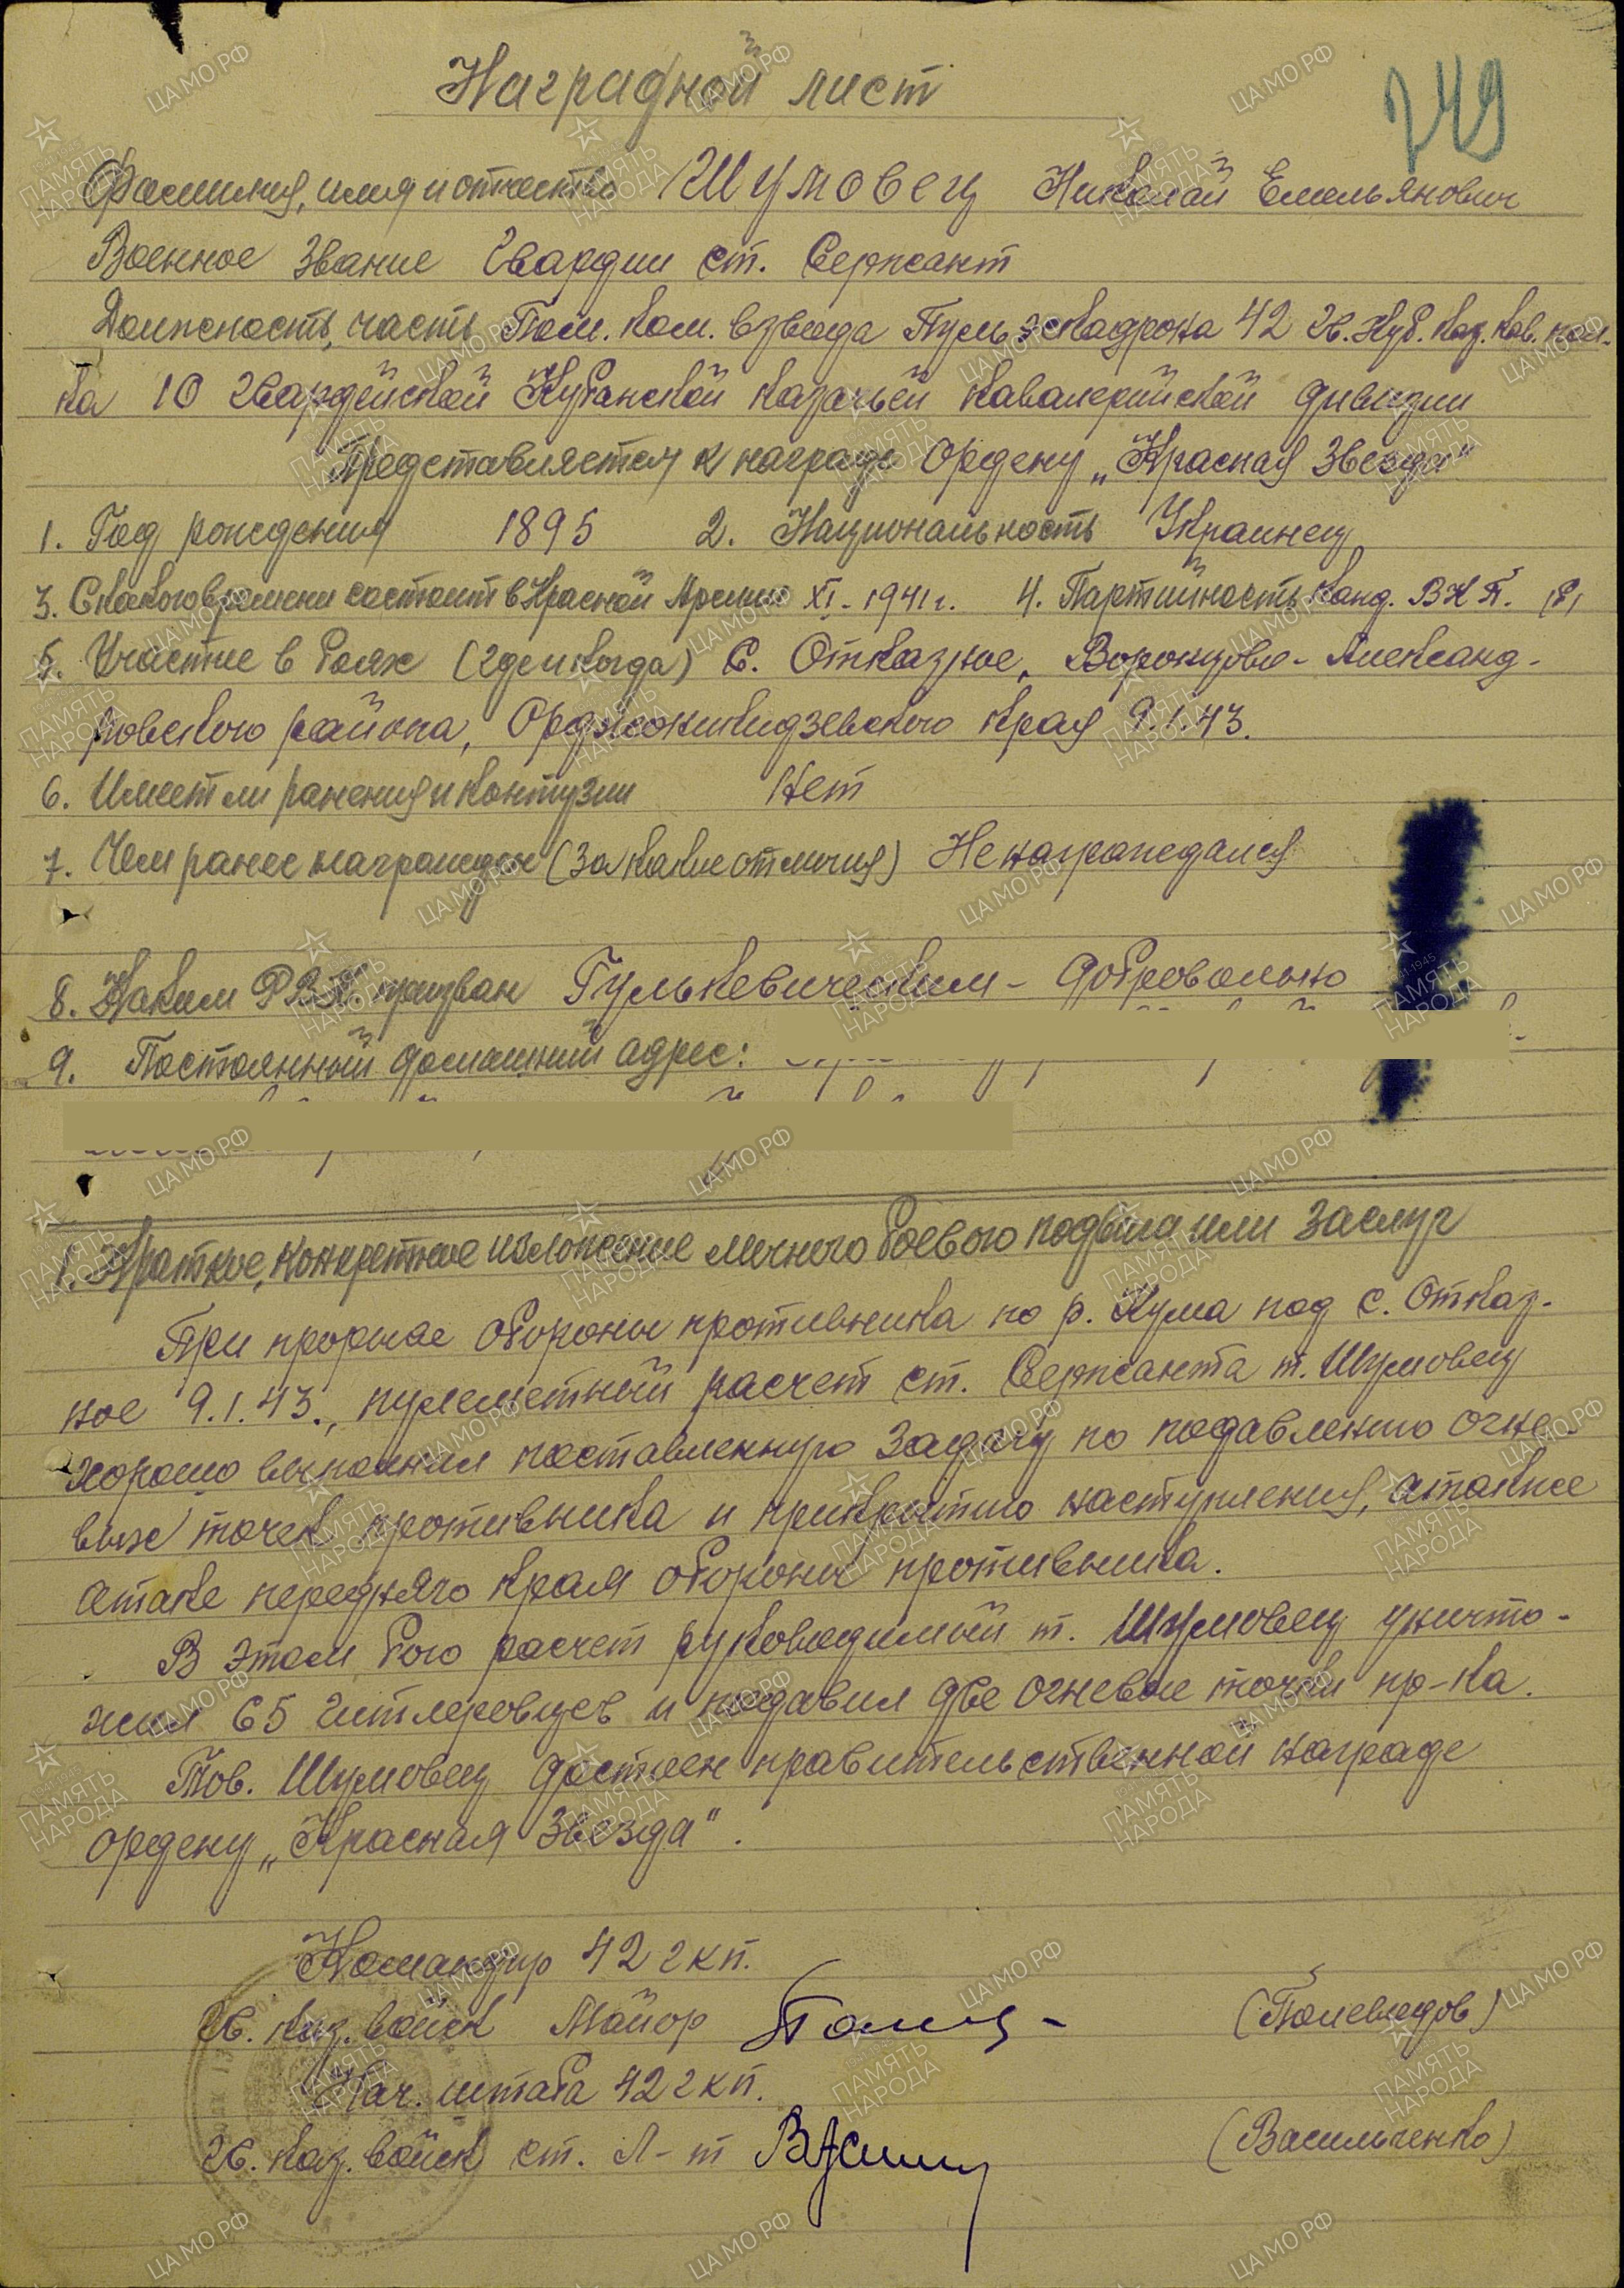 Наградной лист
249
Фамилия, имя и отчество Шумовец Николай Емельянович
Военное звание Гвардии ст. Сержант
Должность, часть Пом. ком. взвода Пульэскадрона 42 Гв. Куб. каз. кав. пол-
ка 10 Гвардейской Кубанской казачьей кавалерийской дивизии
Представляется к награде Ордену „Красная Звезда"
1. Год рождения 1895 2. Национальность Украинец
3. С какого времени состоит в Красной Армии XI-1941г. 4. Партийность Канд. ВКП. (б)
5. Участие в боях (где и когда) С. Отказное, Воронцово-Александ-
ровского района, Орджоникидзевского края 9.1.43.
6. Имеет ли ранения и контузии Нет
7. Чем ранее награжден (за какие отличия) Не награждался
8. Каким РВК призван Гулькевическим - добровольно
9. Постоянный домашний адрес:
1. Краткое, конкретное изложение личного боевого подвига или заслуг
При прорыве обороны противника по р. Кума под с. Отказ-
ное 9.1.43., пулеметный расчет ст. Сержанта т. Шумовец
хорошо выполнил поставленную задачу по подавлению огне-
вых точек противника и прикрытию наступления, атакже
атаке переднего края обороны противника.
В этом бою расчет руководимый т. Шумовец уничто-
жил 65 гитлеровцев и подавил две огневые точки пр-ка.
Тов. Шумовец достоен правительственной награде
ордену „Красная Звезда".
Командир 42 гкп.
Гв. каз. войск Майор (Полевидов)
Нач. штаба 42 гкп.
Гв. каз. войск ст. Л-т (Васильченко)
ПАМЯТЬ НАРОДА
ЦАМО РФ